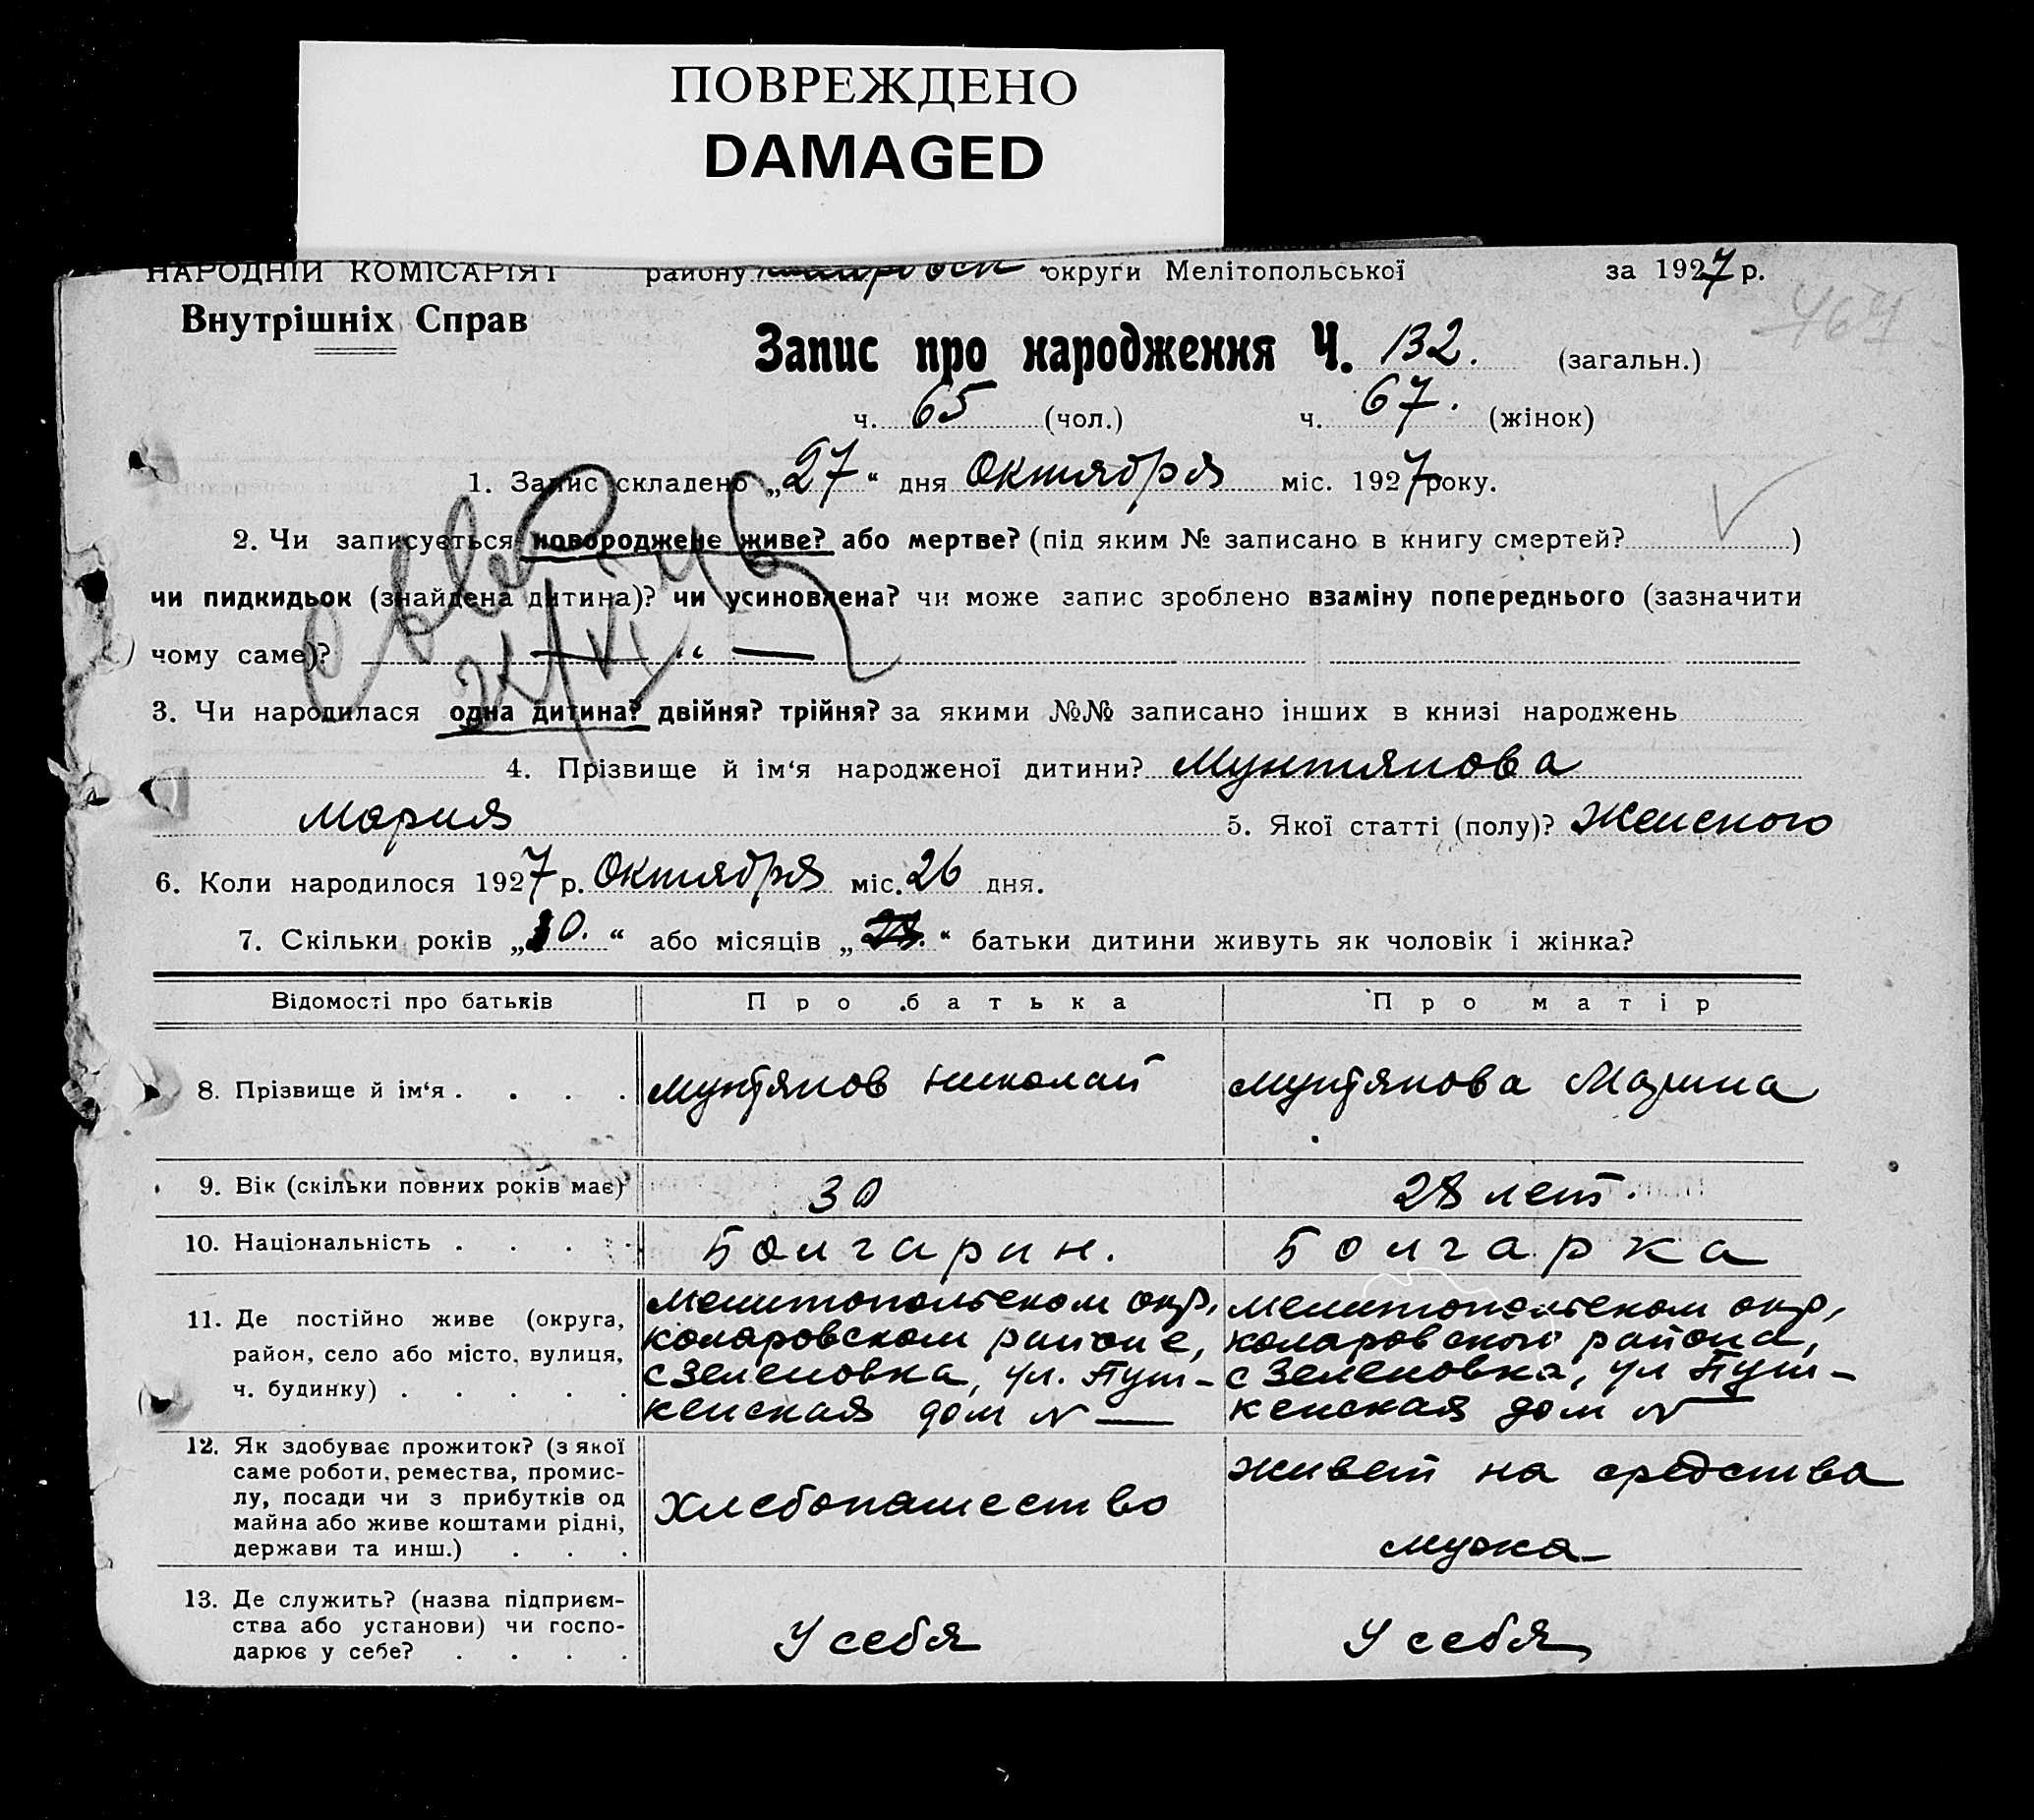 ПОВРЕЖДЕНО
DAMAGED
НАРОДНІЙ КОМІСАРІЯТ району округи Мелітопольської за 1927 р.
Внутрішніх Справ
464
Запис про народження Ч. 132. (загальн.)
ч. 65 (чол.) ч. 67. (жінок)
1. Запис складено „27“ дня Октября міс. 1927 року.
2. Чи записується новороджене живе? або мертве? (під яким № записано в книгу смертей? )
чи пидкидьок (знайдена дитина)? чи усиновлена? чи може запис зроблено взаміну попереднього (зазначити
чому саме)? — “ —
3. Чи народилася одна дитина? двійня? трійня? за якими №№ записано інших в книзі народжень
4. Прізвище й ім‘я народженої дитини? Мунтянова
Мария 5. Якої статті (полу)? Женского
6. Коли народилося 1927 р. Октября міс. 26 дня.
7. Скільки років „10.“ або місяців „ “ батьки дитини живуть як чоловік і жінка?
Відомості про батьків Про батька Про матір
8. Прізвище й ім‘я . . . . Мунтянов Николай Мунтянова Марина
9. Вік (скільки повних років має) 30 28 лет.
10. Національність . . . . Болгарин. Болгарка
11. Де постійно живе (округа, район, село або місто, вулиця, ч. будинку) . . . . .
Мелитопольском окр, Мелитопольском окр,
Коларовском районе, Коларовского района,
с Зеленовка, ул. Пуш- с Зеленовка, ул Пуш-
кенская дом № — кенская дом № —
12. Як здобуває прожиток? (з якої
саме роботи, ремества, промис-
лу, посади чи з прибутків од
майна або живе коштами рідні,
держави та инш.) . . .
Хлебопашество живет на средства
мужа
13. Де служить? (назва підприєм-
ства або установи) чи госпо-
дарює у себе? . . . .
У себя У себя